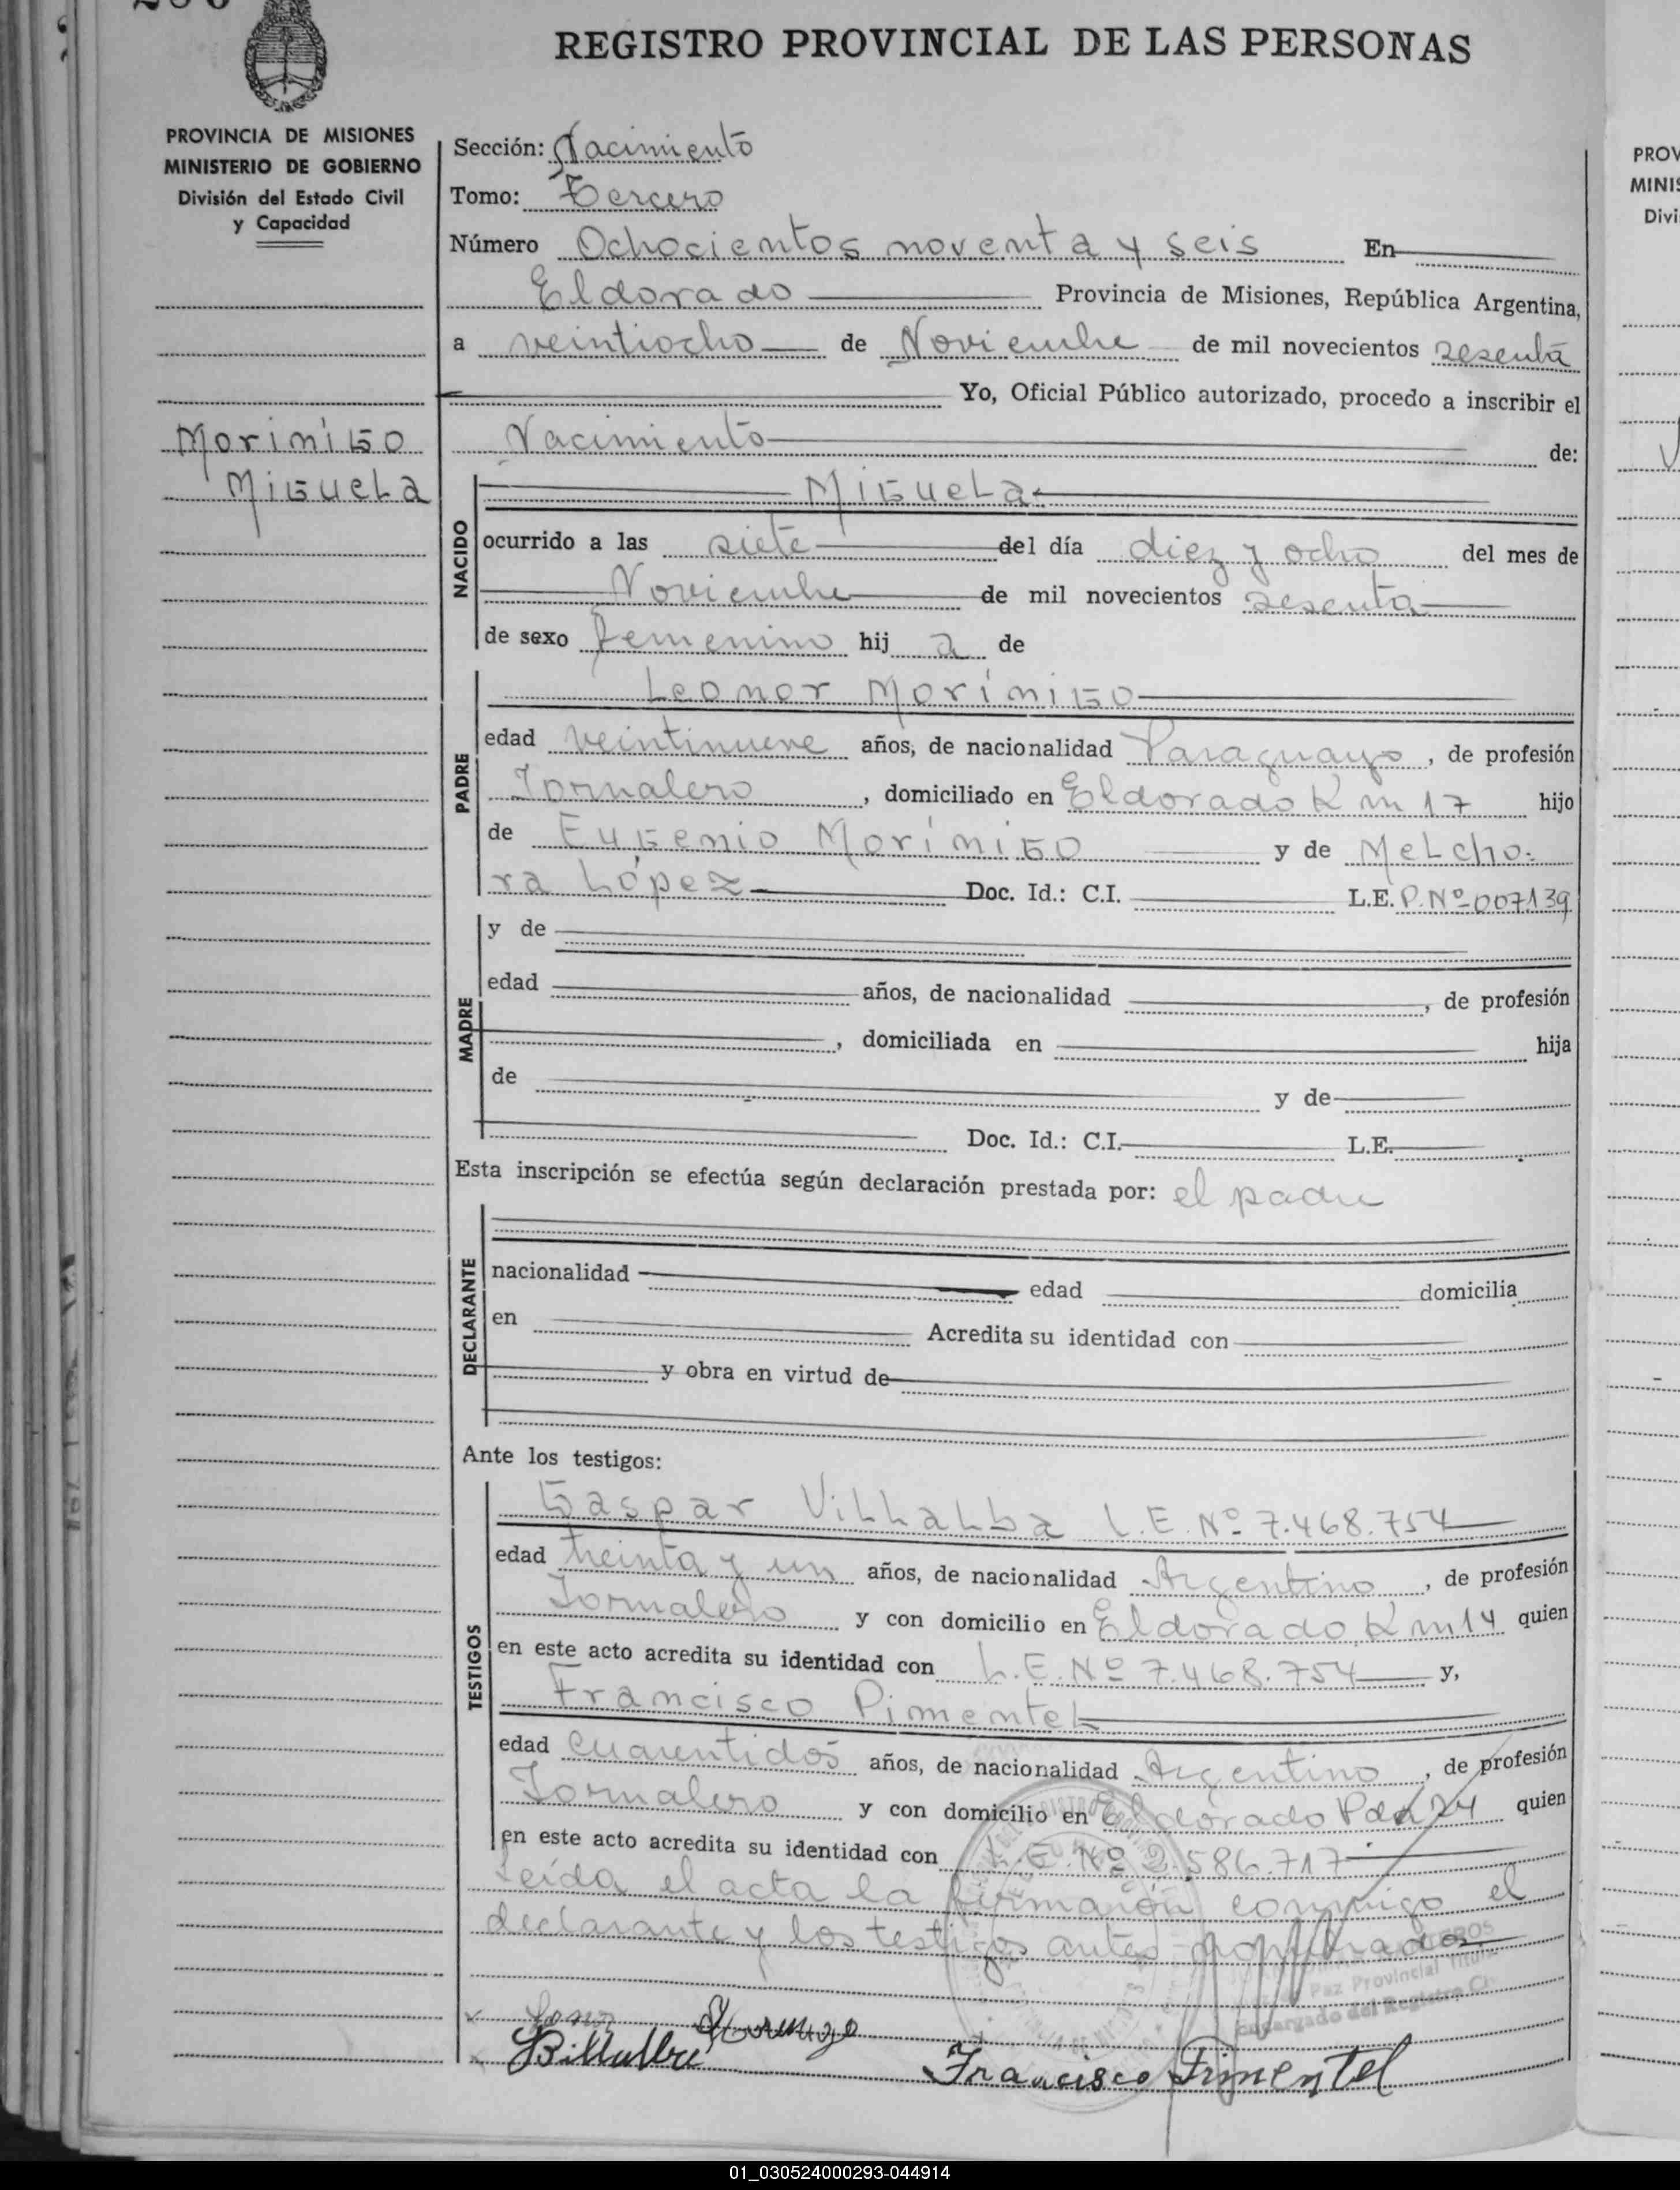 REGISTRO PROVINCIAL DE LAS PERSONAS
PROVINCIA DE MISIONES
MINISTERIO DE GOBIERNO
División del Estado Civil
y Capacidad
Moríniso
Miguela
Sección: Nacimiento
Tomo: Tercero
Número Ochocientos noventa y seis En
Eldorado Provincia de Misiones, República Argentina,
a veintiocho de Noviembre de mil novecientos sesenta
Yo, Oficial Público autorizado, procedo a inscribir el
Nacimiento de:
NACIDO
Miguela
ocurrido a las siete del día diez y ocho del mes de
Noviembre de mil novecientos sesenta
de sexo femenino hij a de
PADRE
Leonor Morínigo
edad veintinueve años, de nacionalidad Paraguayo, de profesión
Jornalero, domiciliado en Eldorado Km 17 hijo
de Eugenio Morínigo y de Melcho-
ra López Doc. Id.: C.I. L.E. P. Nº 007139
MADRE
y de
edad años, de nacionalidad , de profesión
, domiciliada en hija
de y de
Doc. Id.: C.I. L.E.
Esta inscripción se efectúa según declaración prestada por: el padre
DECLARANTE
nacionalidad edad domicilia
en Acredita su identidad con
y obra en virtud de
Ante los testigos:
TESTIGOS
Gaspar Villalba L.E. Nº 7.468.754
edad treinta y un años, de nacionalidad Argentino, de profesión
Jornalero y con domicilio en Eldorado Km 14 quien
en este acto acredita su identidad con L.E. Nº 7.468.754 y,
Francisco Pimentel
edad cuarentidos años, de nacionalidad Argentino, de profesión
Jornalero y con domicilio en Eldorado quien
en este acto acredita su identidad con L.E. Nº 2.586.717
Leída el acta la firmaron conmigo el
declarante y los testigos antes nombrados
Paz Provincial Titular
Encargado del Registro
Morinigo
Billalba
Francisco Pimentel
PROV
MINIS
Divi
01_030524000293-044914